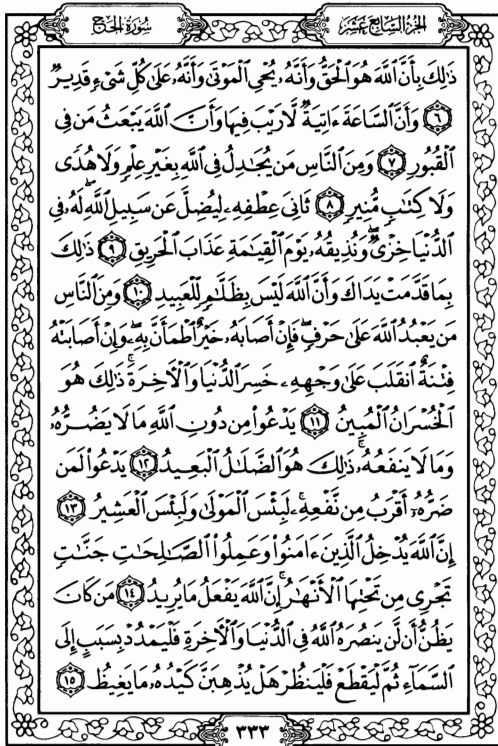 سُورَةُ الحَجّ
الجُزءُ السَّابِعَ عَشَرَ
ذَٰلِكَ بِأَنَّ ٱللَّهَ هُوَ ٱلْحَقُّ وَأَنَّهُۥ يُحْىِ ٱلْمَوْتَىٰ وَأَنَّهُۥ عَلَىٰ كُلِّ شَىْءٍ قَدِيرٌ
٦ وَأَنَّ ٱلسَّاعَةَ ءَاتِيَةٌ لَّا رَيْبَ فِيهَا وَأَنَّ ٱللَّهَ يَبْعَثُ مَن فِى
ٱلْقُبُورِ ٧ وَمِنَ ٱلنَّاسِ مَن يُجَـٰدِلُ فِى ٱللَّهِ بِغَيْرِ عِلْمٍ وَلَا هُدًى
وَلَا كِتَـٰبٍ مُّنِيرٍ ٨ ثَانِىَ عِطْفِهِۦ لِيُضِلَّ عَن سَبِيلِ ٱللَّهِ ۖ لَهُۥ فِى
ٱلدُّنْيَا خِزْىٌ ۖ وَنُذِيقُهُۥ يَوْمَ ٱلْقِيَـٰمَةِ عَذَابَ ٱلْحَرِيقِ ٩ ذَٰلِكَ
بِمَا قَدَّمَتْ يَدَاكَ وَأَنَّ ٱللَّهَ لَيْسَ بِظَلَّـٰمٍ لِّلْعَبِيدِ ١٠ وَمِنَ ٱلنَّاسِ
مَن يَعْبُدُ ٱللَّهَ عَلَىٰ حَرْفٍ ۖ فَإِنْ أَصَابَهُۥ خَيْرٌ ٱطْمَأَنَّ بِهِۦ ۖ وَإِنْ أَصَابَتْهُ
فِتْنَةٌ ٱنقَلَبَ عَلَىٰ وَجْهِهِۦ خَسِرَ ٱلدُّنْيَا وَٱلْـَٔاخِرَةَ ۚ ذَٰلِكَ هُوَ
ٱلْخُسْرَانُ ٱلْمُبِينُ ١١ يَدْعُوا۟ مِن دُونِ ٱللَّهِ مَا لَا يَضُرُّهُۥ
وَمَا لَا يَنفَعُهُۥ ۚ ذَٰلِكَ هُوَ ٱلضَّلَـٰلُ ٱلْبَعِيدُ ١٢ يَدْعُوا۟ لَمَن
ضَرُّهُۥٓ أَقْرَبُ مِن نَّفْعِهِۦ ۚ لَبِئْسَ ٱلْمَوْلَىٰ وَلَبِئْسَ ٱلْعَشِيرُ ١٣
إِنَّ ٱللَّهَ يُدْخِلُ ٱلَّذِينَ ءَامَنُوا۟ وَعَمِلُوا۟ ٱلصَّـٰلِحَـٰتِ جَنَّـٰتٍ
تَجْرِى مِن تَحْتِهَا ٱلْأَنْهَـٰرُ ۚ إِنَّ ٱللَّهَ يَفْعَلُ مَا يُرِيدُ ١٤ مَن كَانَ
يَظُنُّ أَن لَّن يَنصُرَهُ ٱللَّهُ فِى ٱلدُّنْيَا وَٱلْـَٔاخِرَةِ فَلْيَمْدُدْ بِسَبَبٍ إِلَى
ٱلسَّمَآءِ ثُمَّ لْيَقْطَعْ فَلْيَنظُرْ هَلْ يُذْهِبَنَّ كَيْدُهُۥ مَا يَغِيظُ ١٥
٣٣٣